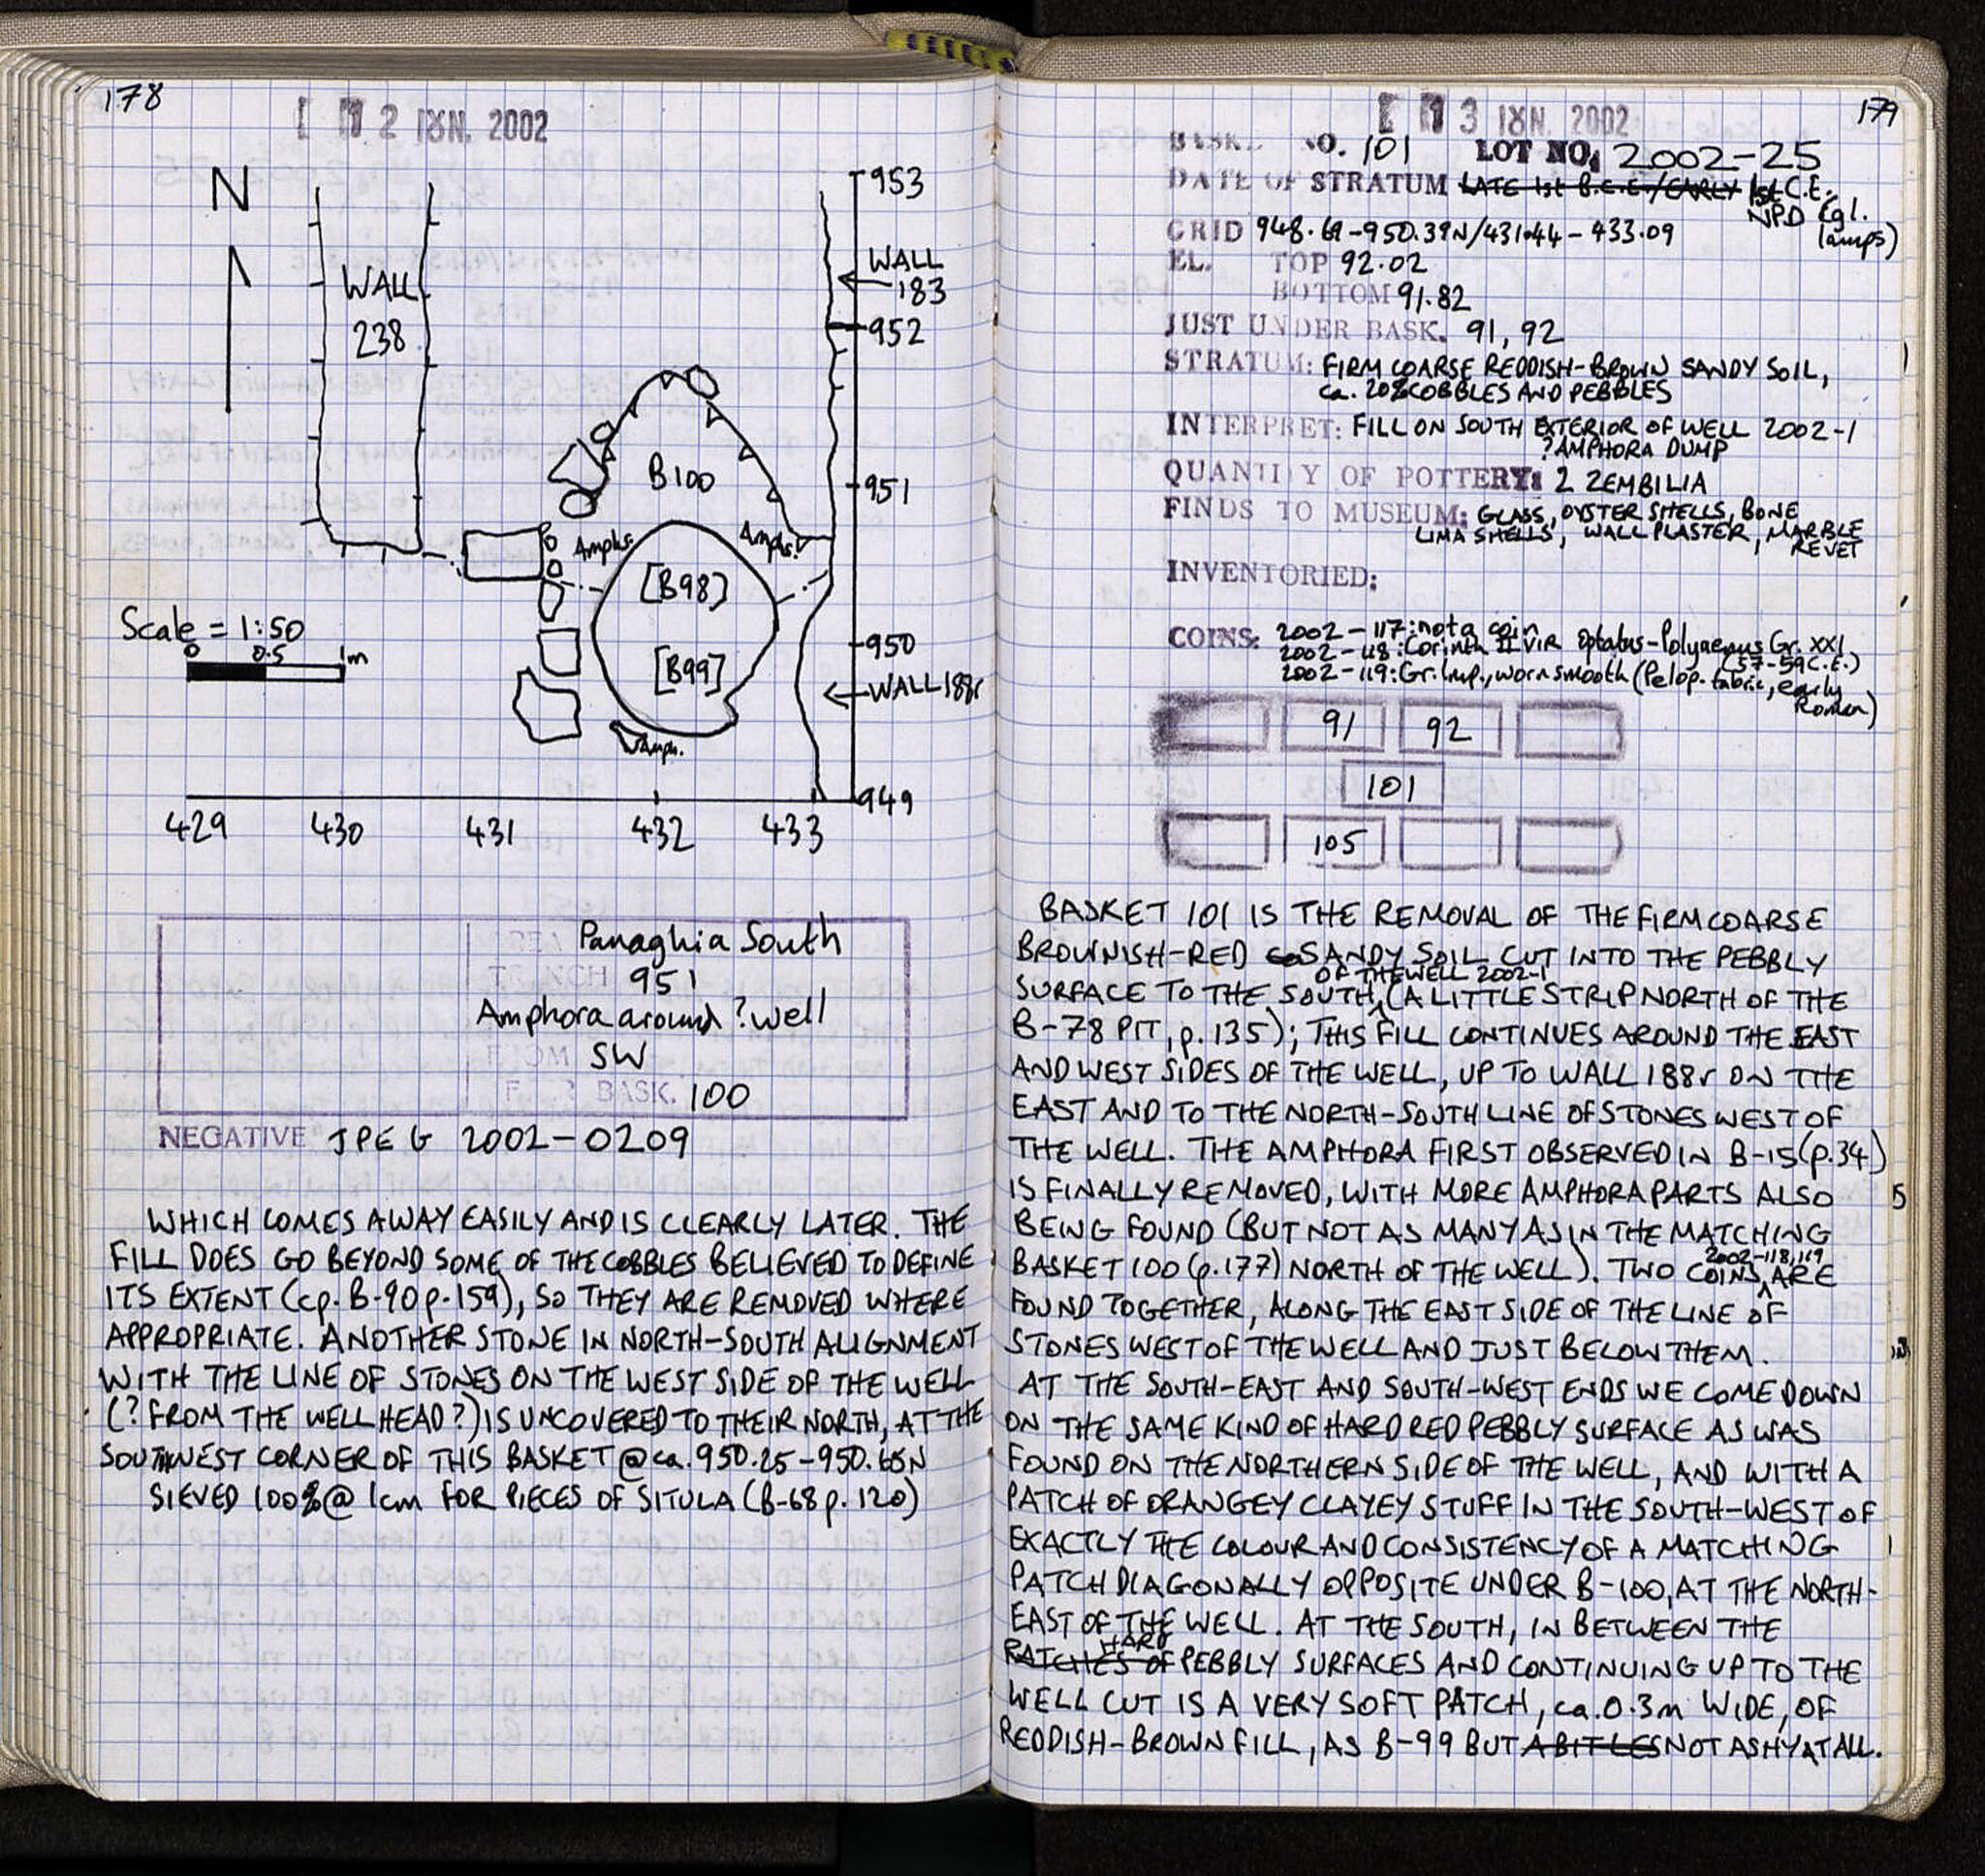 178
12 IOYN. 2002
N
953
WALL
183
WALL
238
952
B100
951
Amphs.
Amphs.
[B98]
Scale = 1:50
0 0.5 1m
950
[B99]
WALL 188r
Amph.
949
429 430 431 432 433
Panaghia South
TRENCH 951
Amphora around ? well
FROM SW
BASK. 100
NEGATIVE JPEG 2002-0209
WHICH COMES AWAY EASILY AND IS CLEARLY LATER. THE
FILL DOES GO BEYOND SOME OF THE COBBLES BELIEVED TO DEFINE
ITS EXTENT (cp. B-90 p.159), SO THEY ARE REMOVED WHERE
APPROPRIATE. ANOTHER STONE IN NORTH-SOUTH ALIGNMENT
WITH THE LINE OF STONES ON THE WEST SIDE OF THE WELL
(? FROM THE WELL HEAD?) IS UNCOVERED TO THEIR NORTH, AT THE
SOUTHWEST CORNER OF THIS BASKET @ ca. 950.25-950.65N
SIEVED 100% @ 1cm FOR PIECES OF SITULA (B-68 p.120)
179
13 IOYN. 2002
BASKET NO. 101 LOT NO. 2002-25
DATE OF STRATUM LATE 1st B.C.E./EARLY 1st C.E.
NPD (gl. lamps)
GRID 948.69-950.39N/431.44-433.09
EL. TOP 92.02
BOTTOM 91.82
JUST UNDER BASK. 91, 92
STRATUM: FIRM COARSE REDDISH-BROWN SANDY SOIL,
ca. 20% COBBLES AND PEBBLES
INTERPRET: FILL ON SOUTH EXTERIOR OF WELL 2002-1
? AMPHORA DUMP
QUANTITY OF POTTERY: 2 ZEMBILIA
FINDS TO MUSEUM: GLASS, OYSTER SHELLS, BONE
LIMA SHELLS, WALL PLASTER, MARBLE
REVET
INVENTORIED:
COINS: 2002-117: not a coin
2002-118: Corinth IIVIR Optatus-Polyaenus Gr. XXI
(57-59 C.E.)
2002-119: Gr. Imp., worn smooth (Pelop. fabric, early
Roman)
91 92
101
105
BASKET 101 IS THE REMOVAL OF THE FIRM COARSE
BROWNISH-RED co SANDY SOIL CUT INTO THE PEBBLY
SURFACE TO THE SOUTH OF THE WELL 2002-1 (A LITTLE STRIP NORTH OF THE
B-78 PIT, p.135); THIS FILL CONTINUES AROUND THE EAST
AND WEST SIDES OF THE WELL, UP TO WALL 188r ON THE
EAST AND TO THE NORTH-SOUTH LINE OF STONES WEST OF
THE WELL. THE AMPHORA FIRST OBSERVED IN B-15 (p.34)
IS FINALLY REMOVED, WITH MORE AMPHORA PARTS ALSO
BEING FOUND (BUT NOT AS MANY AS IN THE MATCHING
BASKET 100 (p.177) NORTH OF THE WELL). TWO COINS 2002-118,119 ARE
FOUND TOGETHER, ALONG THE EAST SIDE OF THE LINE OF
STONES WEST OF THE WELL AND JUST BELOW THEM.
AT THE SOUTH-EAST AND SOUTH-WEST ENDS WE COME DOWN
ON THE SAME KIND OF HARD RED PEBBLY SURFACE AS WAS
FOUND ON THE NORTHERN SIDE OF THE WELL, AND WITH A
PATCH OF ORANGEY CLAYEY STUFF IN THE SOUTH-WEST OF
EXACTLY THE COLOUR AND CONSISTENCY OF A MATCHING
PATCH DIAGONALLY OPPOSITE UNDER B-100, AT THE NORTH-
EAST OF THE WELL. AT THE SOUTH, IN BETWEEN THE
PATCHES OF HARD PEBBLY SURFACES AND CONTINUING UP TO THE
WELL CUT IS A VERY SOFT PATCH, ca. 0.3m WIDE, OF
REDDISH-BROWN FILL, AS B-99 BUT A BIT LES NOT ASHY AT ALL.